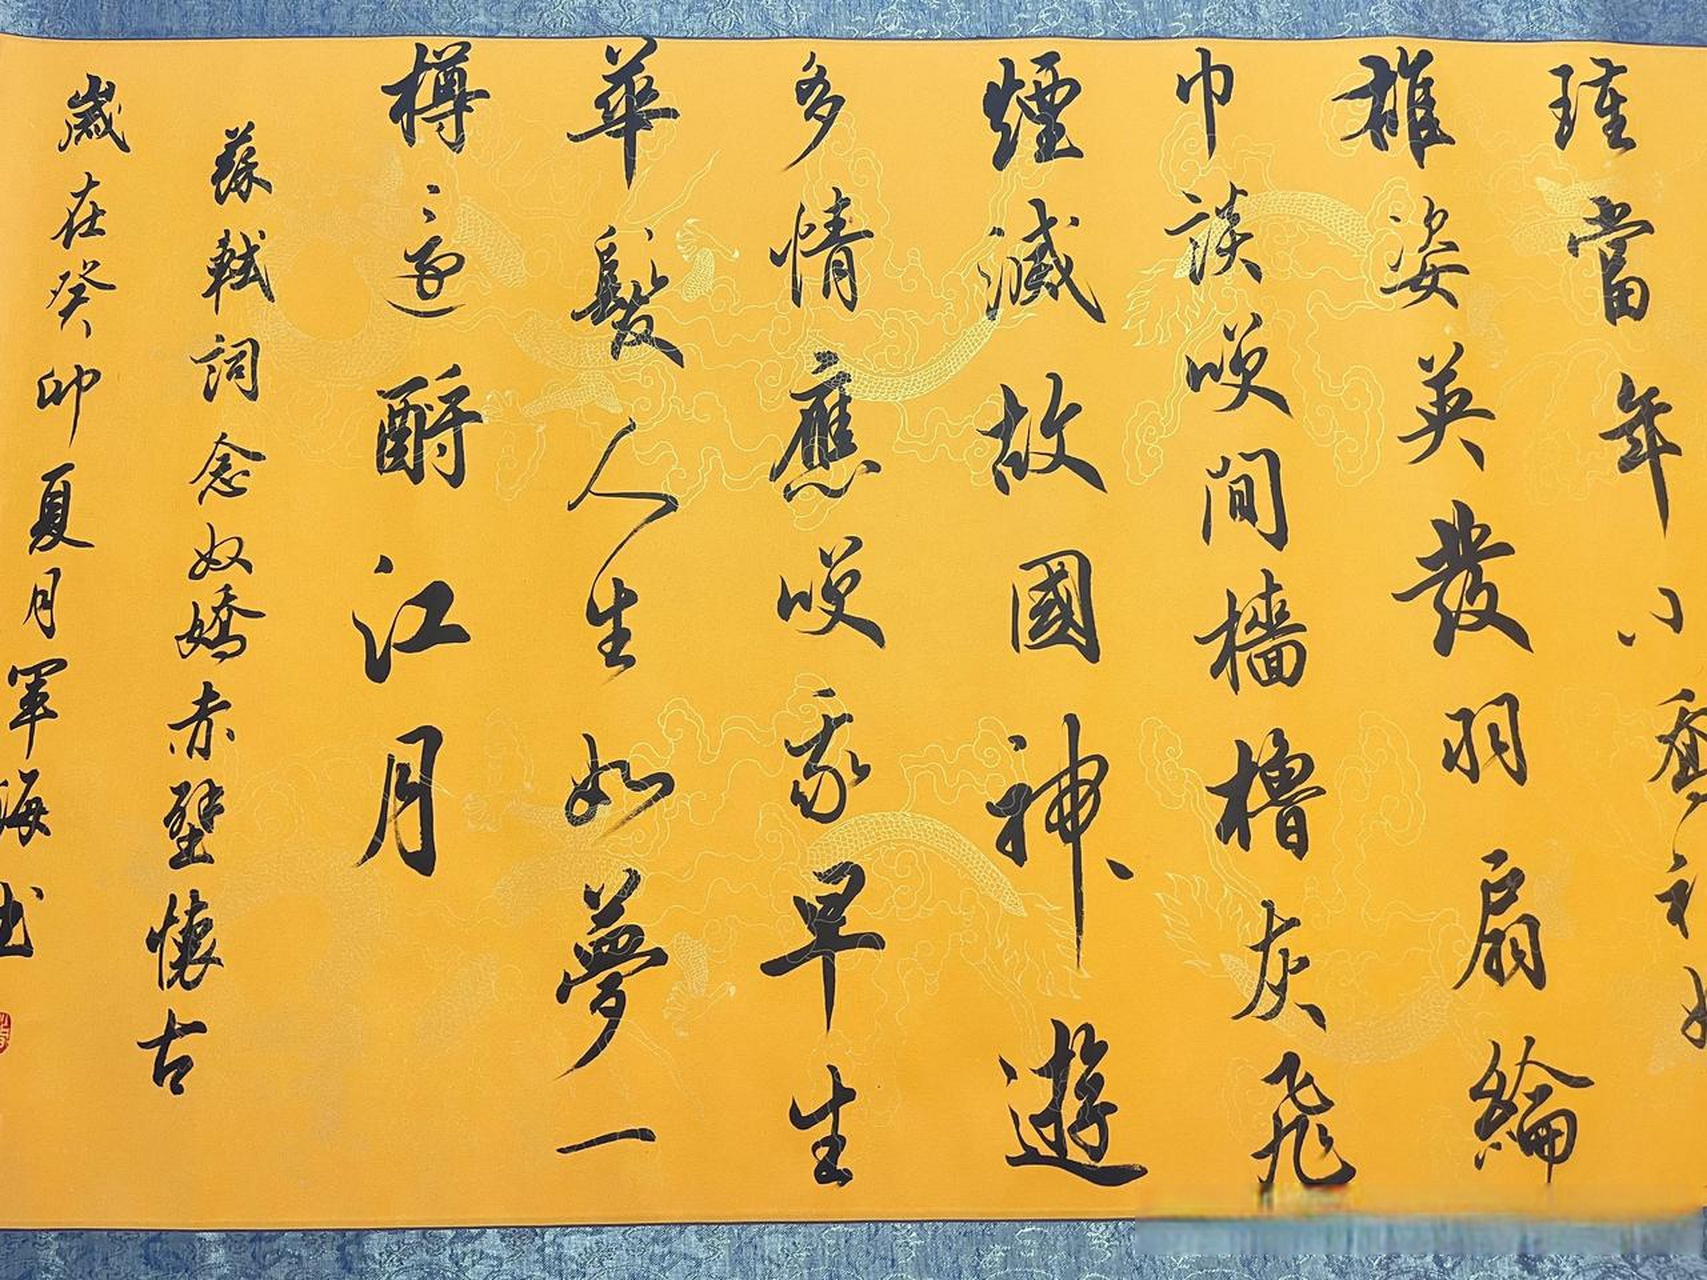 瑾當年小喬
雄姿英發羽扇綸
巾談咲間檣櫓灰飛
煙滅故國神遊
多情應咲我早生
華髮人生如夢一
樽還酹江月
蘇軾詞念奴嬌赤壁懷古
歲在癸卯夏月軍海書